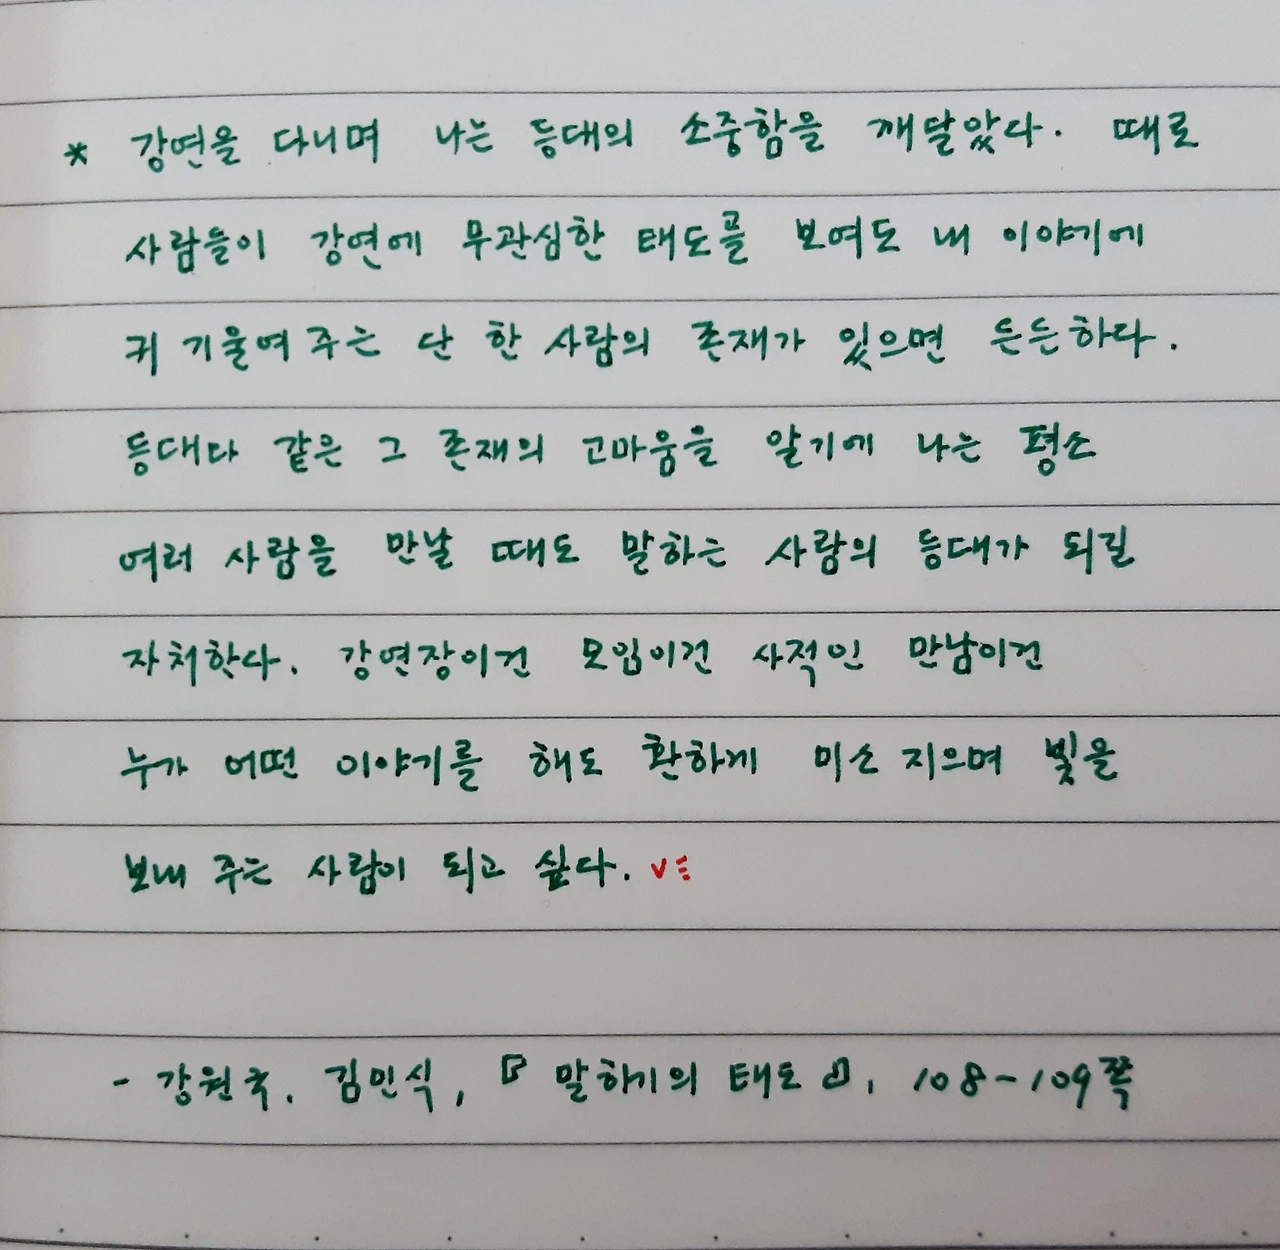 * 강연을 다니며 나는 등대의 소중함을 깨달았다. 때로
사람들이 강연에 무관심한 태도를 보여도 내 이야기에
귀 기울여 주는 단 한 사람의 존재가 있으면 든든하다.
등대다 같은 그 존재의 고마움을 알기에 나는 평소
여러 사람을 만날 때도 말하는 사람의 등대가 되길
자처한다. 강연장이건 모임이건 사적인 만남이건
누가 어떤 이야기를 해도 환하게 미소 지으며 빛을
보내 주는 사람이 되고 싶다.
- 강원국, 김민식, 『말하기의 태도』, 108-109쪽